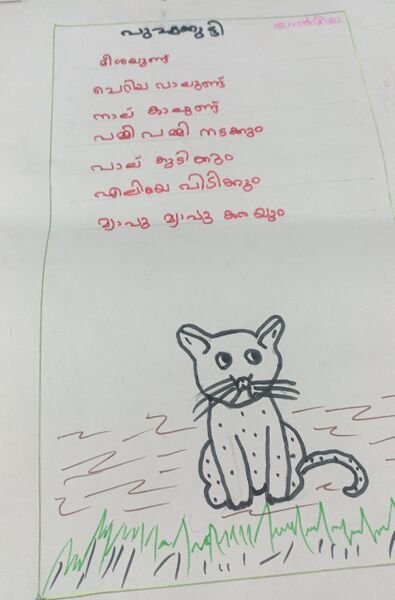 പൂച്ചക്കുട്ടി
മീശയുണ്ട്
ചെറിയ വാലുണ്ട്
നാല് കാലുണ്ട്
പമ്മി പമ്മി നടക്കും
പാല് കുടിക്കും
എലിയെ പിടിക്കും
മ്യാവു മ്യാവു കരയും